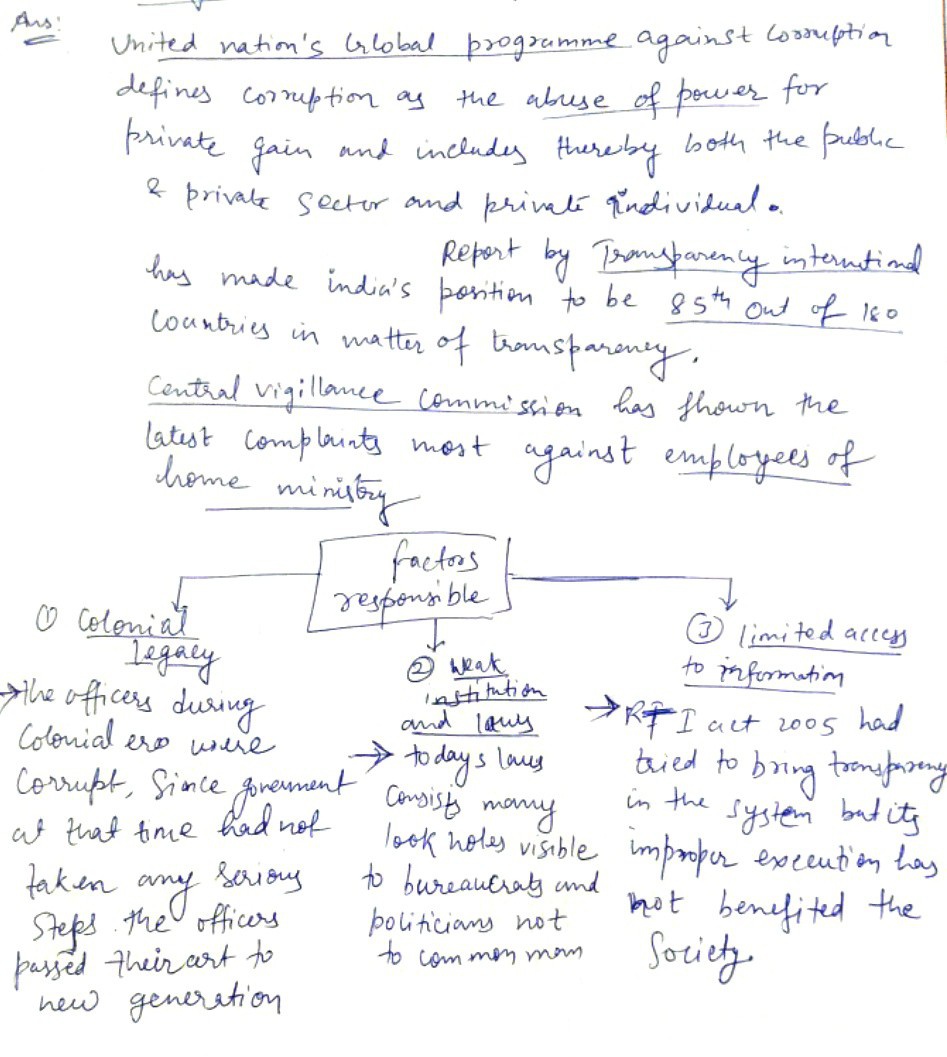 Ans:
United nation's Global programme against Corruption
defines corruption as the abuse of power for
private gain and includes thereby both the public
& private sector and private individual.
Report by Transparency international
has made india's position to be 85th out of 180
Countries in matter of transparency.
Central vigillance commission has shown the
latest complaints most against employees of
home ministry
factors
responsible
① Colonial
Legacy
→ the officers during
Colonial era were
Corrupt, Since government
at that time had not
taken any serious
steps the officers
passed their art to
new generation
② weak
institution
and laws
→ todays laws
Consists many
look holes visible
to bureaucrats and
politicians not
to common man
③ limited access
to information
→ RTI act 2005 had
tried to bring transparency
in the system but its
improper execution has
not benefited the
Society.